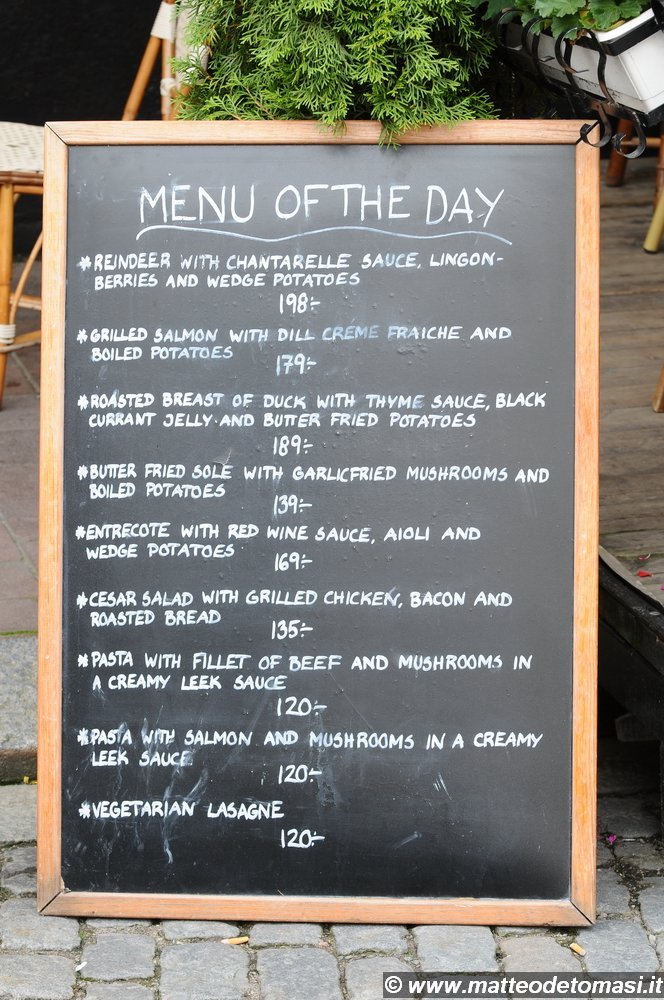 MENU OF THE DAY
*REINDEER WITH CHANTARELLE SAUCE, LINGON-
BERRIES AND WEDGE POTATOES
198:-
*GRILLED SALMON WITH DILL CREME FRAICHE AND
BOILED POTATOES
179:-
*ROASTED BREAST OF DUCK WITH THYME SAUCE, BLACK
CURRANT JELLY AND BUTTER FRIED POTATOES
189:-
*BUTTER FRIED SOLE WITH GARLICFRIED MUSHROOMS AND
BOILED POTATOES
139:-
*ENTRECOTE WITH RED WINE SAUCE, AIOLI AND
WEDGE POTATOES
169:-
*CESAR SALAD WITH GRILLED CHICKEN, BACON AND
ROASTED BREAD
135:-
*PASTA WITH FILLET OF BEEF AND MUSHROOMS IN
A CREAMY LEEK SAUCE
120:-
*PASTA WITH SALMON AND MUSHROOMS IN A CREAMY
LEEK SAUCE
120:-
*VEGETARIAN LASAGNE
120:-
© www.matteodetomasi.it